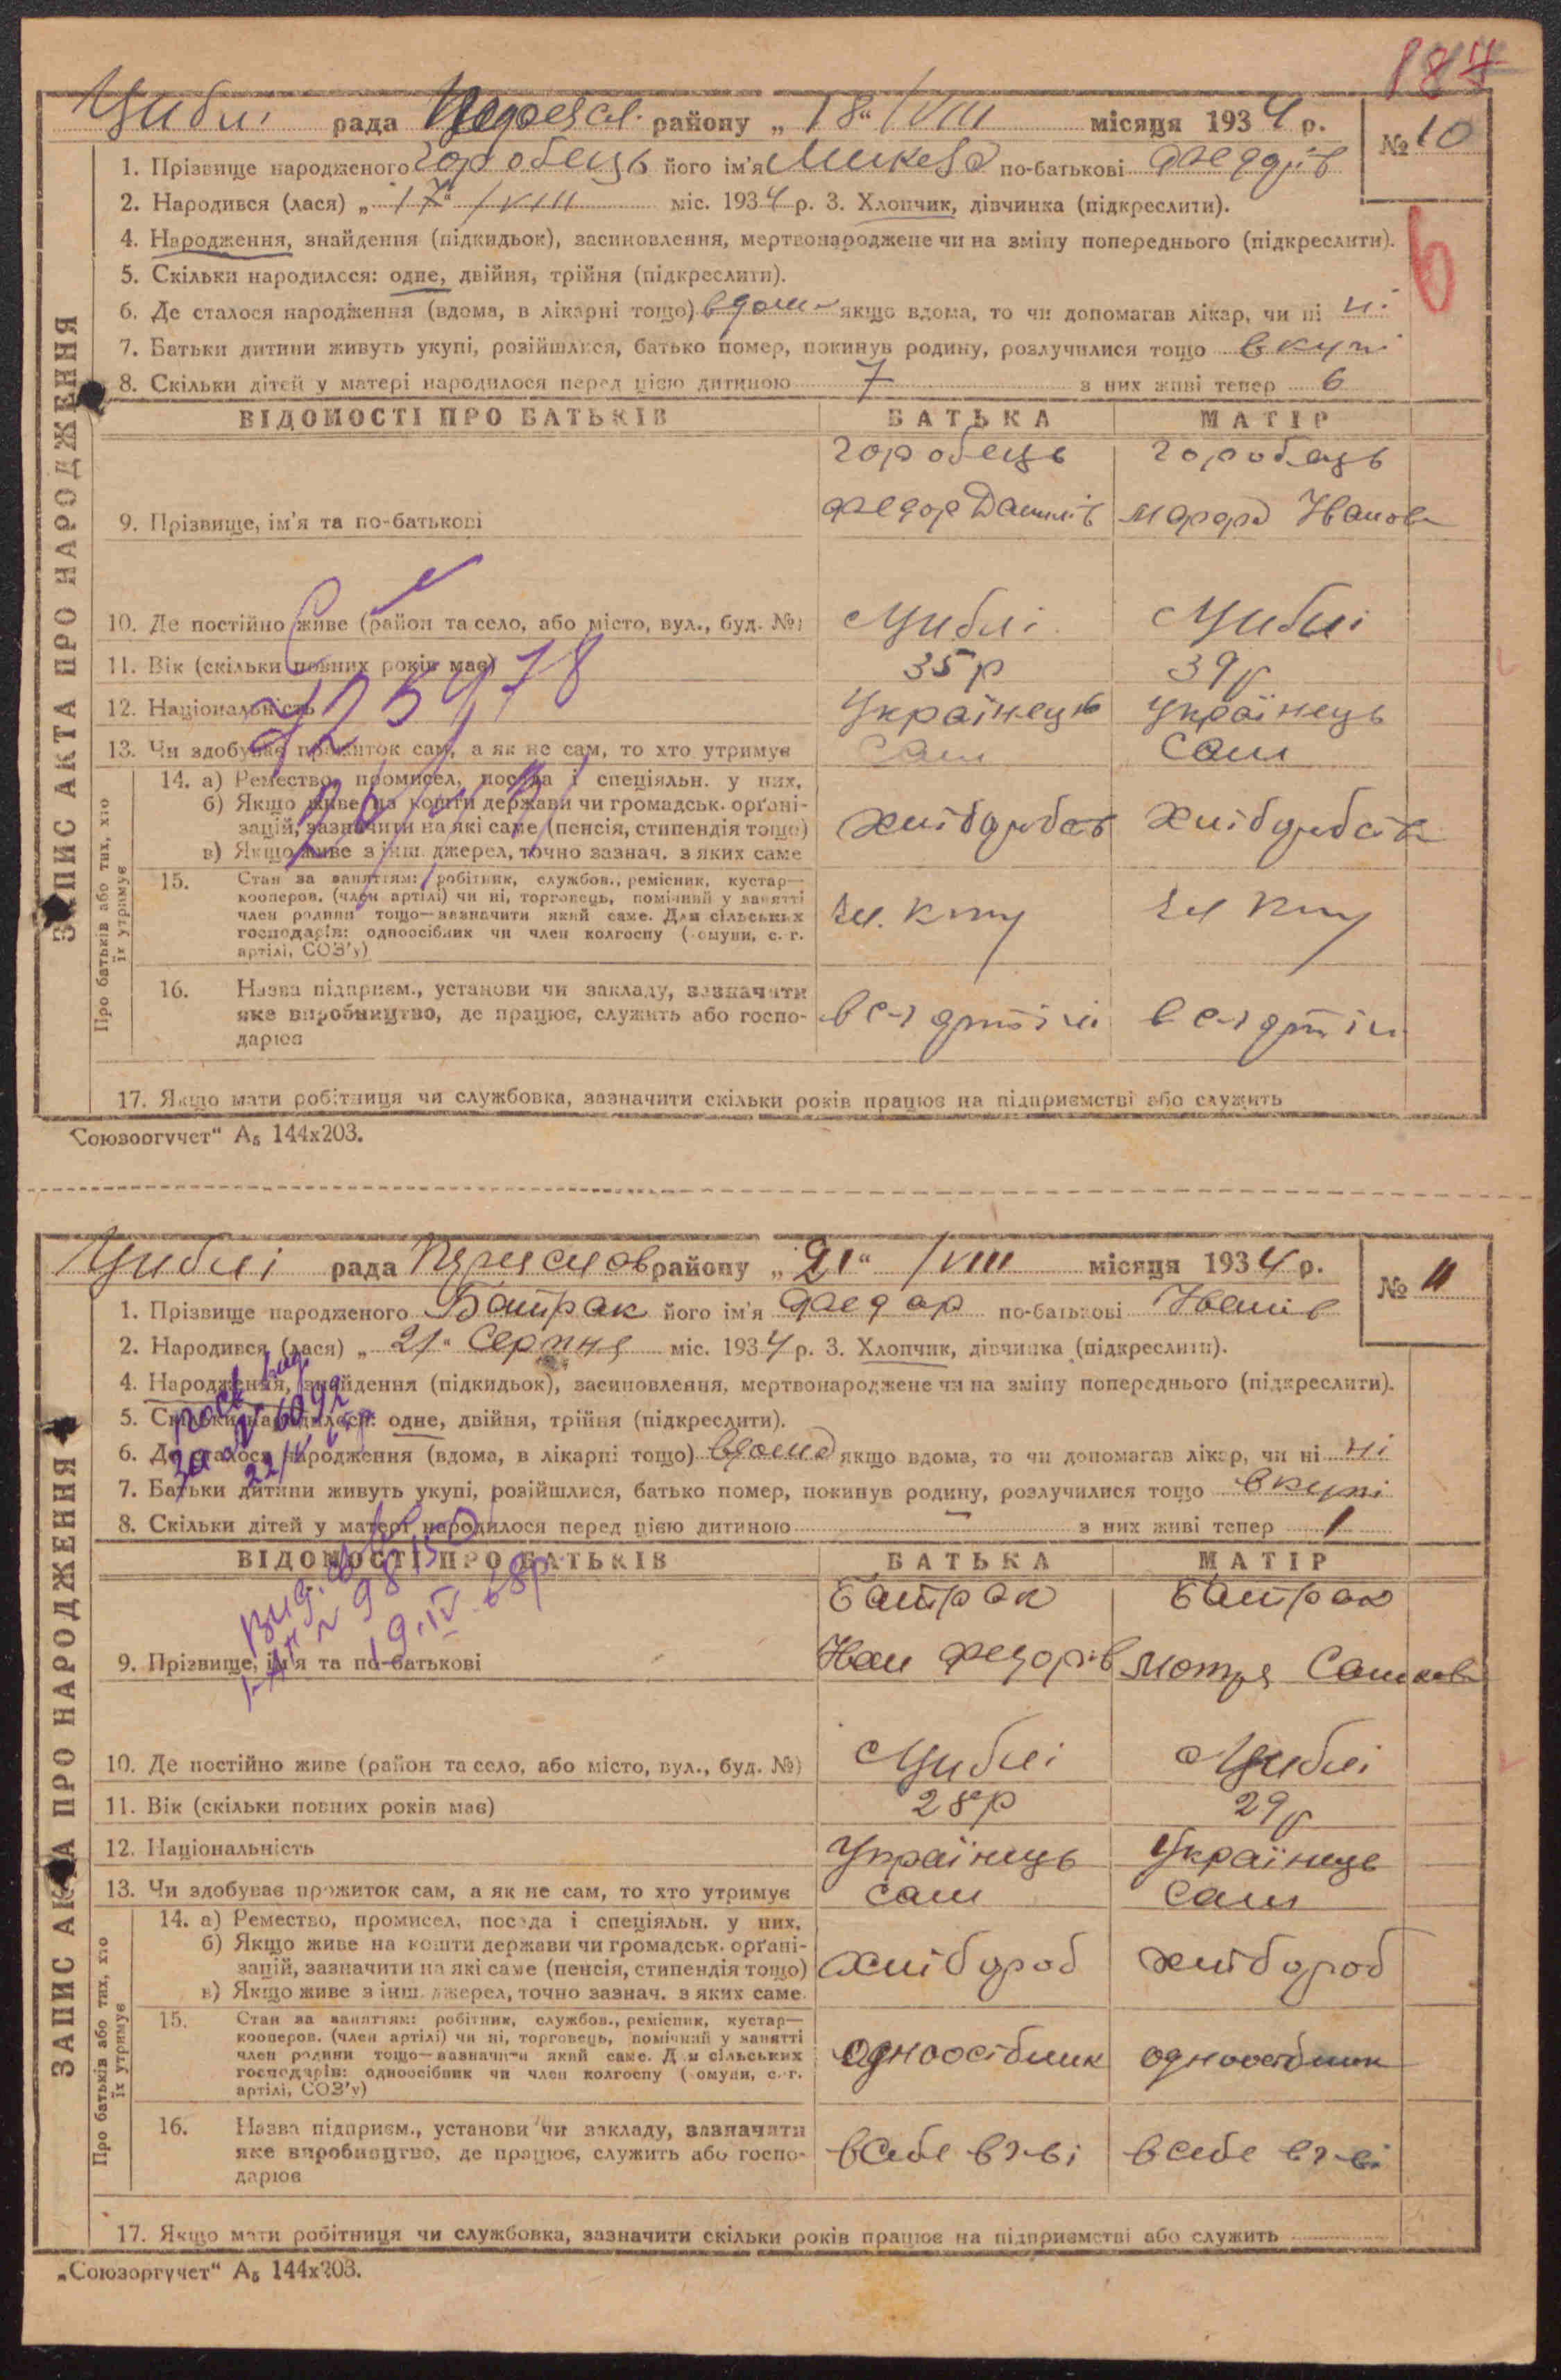 184
Циблі рада Переясл. району „18“ /VIII місяця 1934 р.
№ 10
1. Прізвище народженого Горобець його ім'я Микола по-батькові Федорів
2. Народився (лася) „17“ /VIII міс. 1934 р. 3. Хлопчик, дівчинка (підкреслити).
4. Народження, знайдення (підкидьок), засиновлення, мертвонароджене чи на зміну попереднього (підкреслити).
6
5. Скільки народилося: одне, двійня, трійня (підкреслити).
6. Де сталося народження (вдома, в лікарні тощо) вдома якщо вдома, то чи допомагав лікар, чи ні ні
7. Батьки дитини живуть укупі, розійшлися, батько помер, покинув родину, розлучилися тощо вкупі
8. Скільки дітей у матері народилося перед цією дитиною 7 з них живі тепер 6
ЗАПИС АКТА ПРО НАРОДЖЕННЯ
ВІДОМОСТІ ПРО БАТЬКІВ БАТЬКА МАТІР
Горобець Горобець
9. Прізвище, ім'я та по-батькові Федор Данилів Іванова
10. Де постійно живе (район та село, або місто, вул., буд. №) Циблі Циблі
11. Вік (скільки повних років має) 35 р 39 р
12. Національність Українець Українець
13. Чи здобуває прожиток сам, а як не сам, то хто утримує Сам Сам
Про батьків або тих, хто їх утримує
14. а) Ремество, промисел, посада і спеціяльн. у них.
б) Якщо живе на кошти держави чи громадськ. орґані-
зацій, зазначити на які саме (пенсія, стипендія тощо)
в) Якщо живе з інш. джерел, точно зазнач. з яких саме
15. Стан за заняттям: робітник, службов., ремісник, кустар—
кооперов. (член артілі) чи ні, торговець, помічний у занятті
член родини тощо—зазначити який саме. Для сільських
господарів: одноосібник чи член колгоспу (комуни, с. г.
артілі, СОЗ'у)
16. Назва підприєм., установи чи закладу, зазначити
яке виробництво, де працює, служить або госпо-
дарює
17. Якщо мати робітниця чи службовка, зазначити скільки років працює на підприємстві або служить
„Союзоргучет“ А5 144х203.
Циблі рада району „21“ /VIII місяця 1934 р.
№ 11
1. Прізвище народженого Батрак його ім'я Федор по-батькові Іванів
2. Народився (лася) „21“ Серпня міс. 1934 р. 3. Хлопчик, дівчинка (підкреслити).
4. Народження, знайдення (підкидьок), засиновлення, мертвонароджене чи на зміну попереднього (підкреслити).
5. Скільки народилося: одне, двійня, трійня (підкреслити).
6. Де сталося народження (вдома, в лікарні тощо) вдома якщо вдома, то чи допомагав лікар, чи ні ні
7. Батьки дитини живуть укупі, розійшлися, батько помер, покинув родину, розлучилися тощо вкупі
8. Скільки дітей у матері народилося перед цією дитиною – з них живі тепер 1
ЗАПИС АКТА ПРО НАРОДЖЕННЯ
ВІДОМОСТІ ПРО БАТЬКІВ БАТЬКА МАТІР
Батрак Батрак
19.IV.68р
9. Прізвище, ім'я та по-батькові Іван Федорів Мотря
10. Де постійно живе (район та село, або місто, вул., буд. №) Циблі Циблі
11. Вік (скільки повних років має) 28 р 29 р
12. Національність Українець Українець
13. Чи здобуває прожиток сам, а як не сам, то хто утримує сам сам
Про батьків або тих, хто їх утримує
14. а) Ремество, промисел, посада і спеціяльн. у них.
б) Якщо живе на кошти держави чи громадськ. орґані-
зацій, зазначити на які саме (пенсія, стипендія тощо) хлібороб хлібороб
в) Якщо живе з інш. джерел, точно зазнач. з яких саме
15. Стан за заняттям: робітник, службов., ремісник, кустар—
кооперов. (член артілі) чи ні, торговець, помічний у занятті
член родини тощо—зазначити який саме. Для сільських одноосібник одноосібник
господарів: одноосібник чи член колгоспу (комуни, с. г.
артілі, СОЗ'у)
16. Назва підприєм., установи чи закладу, зазначити
яке виробництво, де працює, служить або госпо- в себе в г-ві в себе в г-ві
дарює
17. Якщо мати робітниця чи службовка, зазначити скільки років працює на підприємстві або служить
„Союзоргучет“ А5 144х203.